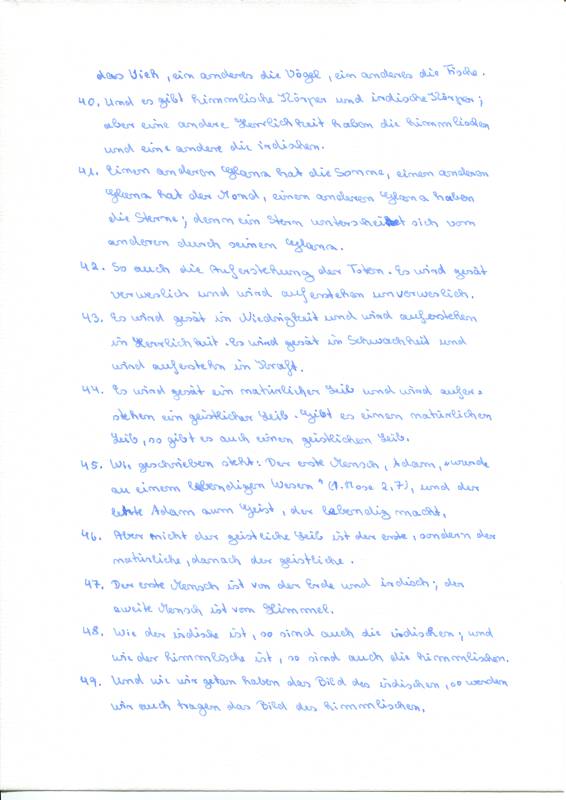 das Vieh, ein anderes die Vögel, ein anderes die Fische.
40. Und es gibt himmlische Körper und irdische Körper;
aber eine andere Herrlichkeit haben die himmlischen
und eine andere die irdischen.
41. Einen anderen Glanz hat die Sonne, einen anderen
Glanz hat der Mond, einen anderen Glanz haben
die Sterne; denn ein Stern unterscheidet sich vom
anderen durch seinen Glanz.
42. So auch die Auferstehung der Toten. Es wird gesät
verweslich und wird auferstehen unverweslich.
43. Es wird gesät in Niedrigkeit und wird auferstehen
in Herrlichkeit. Es wird gesät in Schwachheit und
wird auferstehn in Kraft.
44. Es wird gesät ein natürlicher Leib und wird aufer-
stehen ein geistlicher Leib. Gibt es einen natürlichen
Leib, so gibt es auch einen geistlichen Leib.
45. Wie geschrieben steht: Der erste Mensch, Adam, „wurde
zu einem lebendigen Wesen" (1. Mose 2,7), und der
letzte Adam zum Geist, der lebendig macht.
46. Aber nicht der geistliche Leib ist der erste, sondern der
natürliche, danach der geistliche.
47. Der erste Mensch ist von der Erde und irdisch; der
zweite Mensch ist vom Himmel.
48. Wie der irdische ist, so sind auch die irdischen; und
wie der himmlische ist, so sind auch die himmlischen.
49. Und wie wir getan haben das Bild des irdischen, so werden
wir auch tragen das Bild des himmlischen.